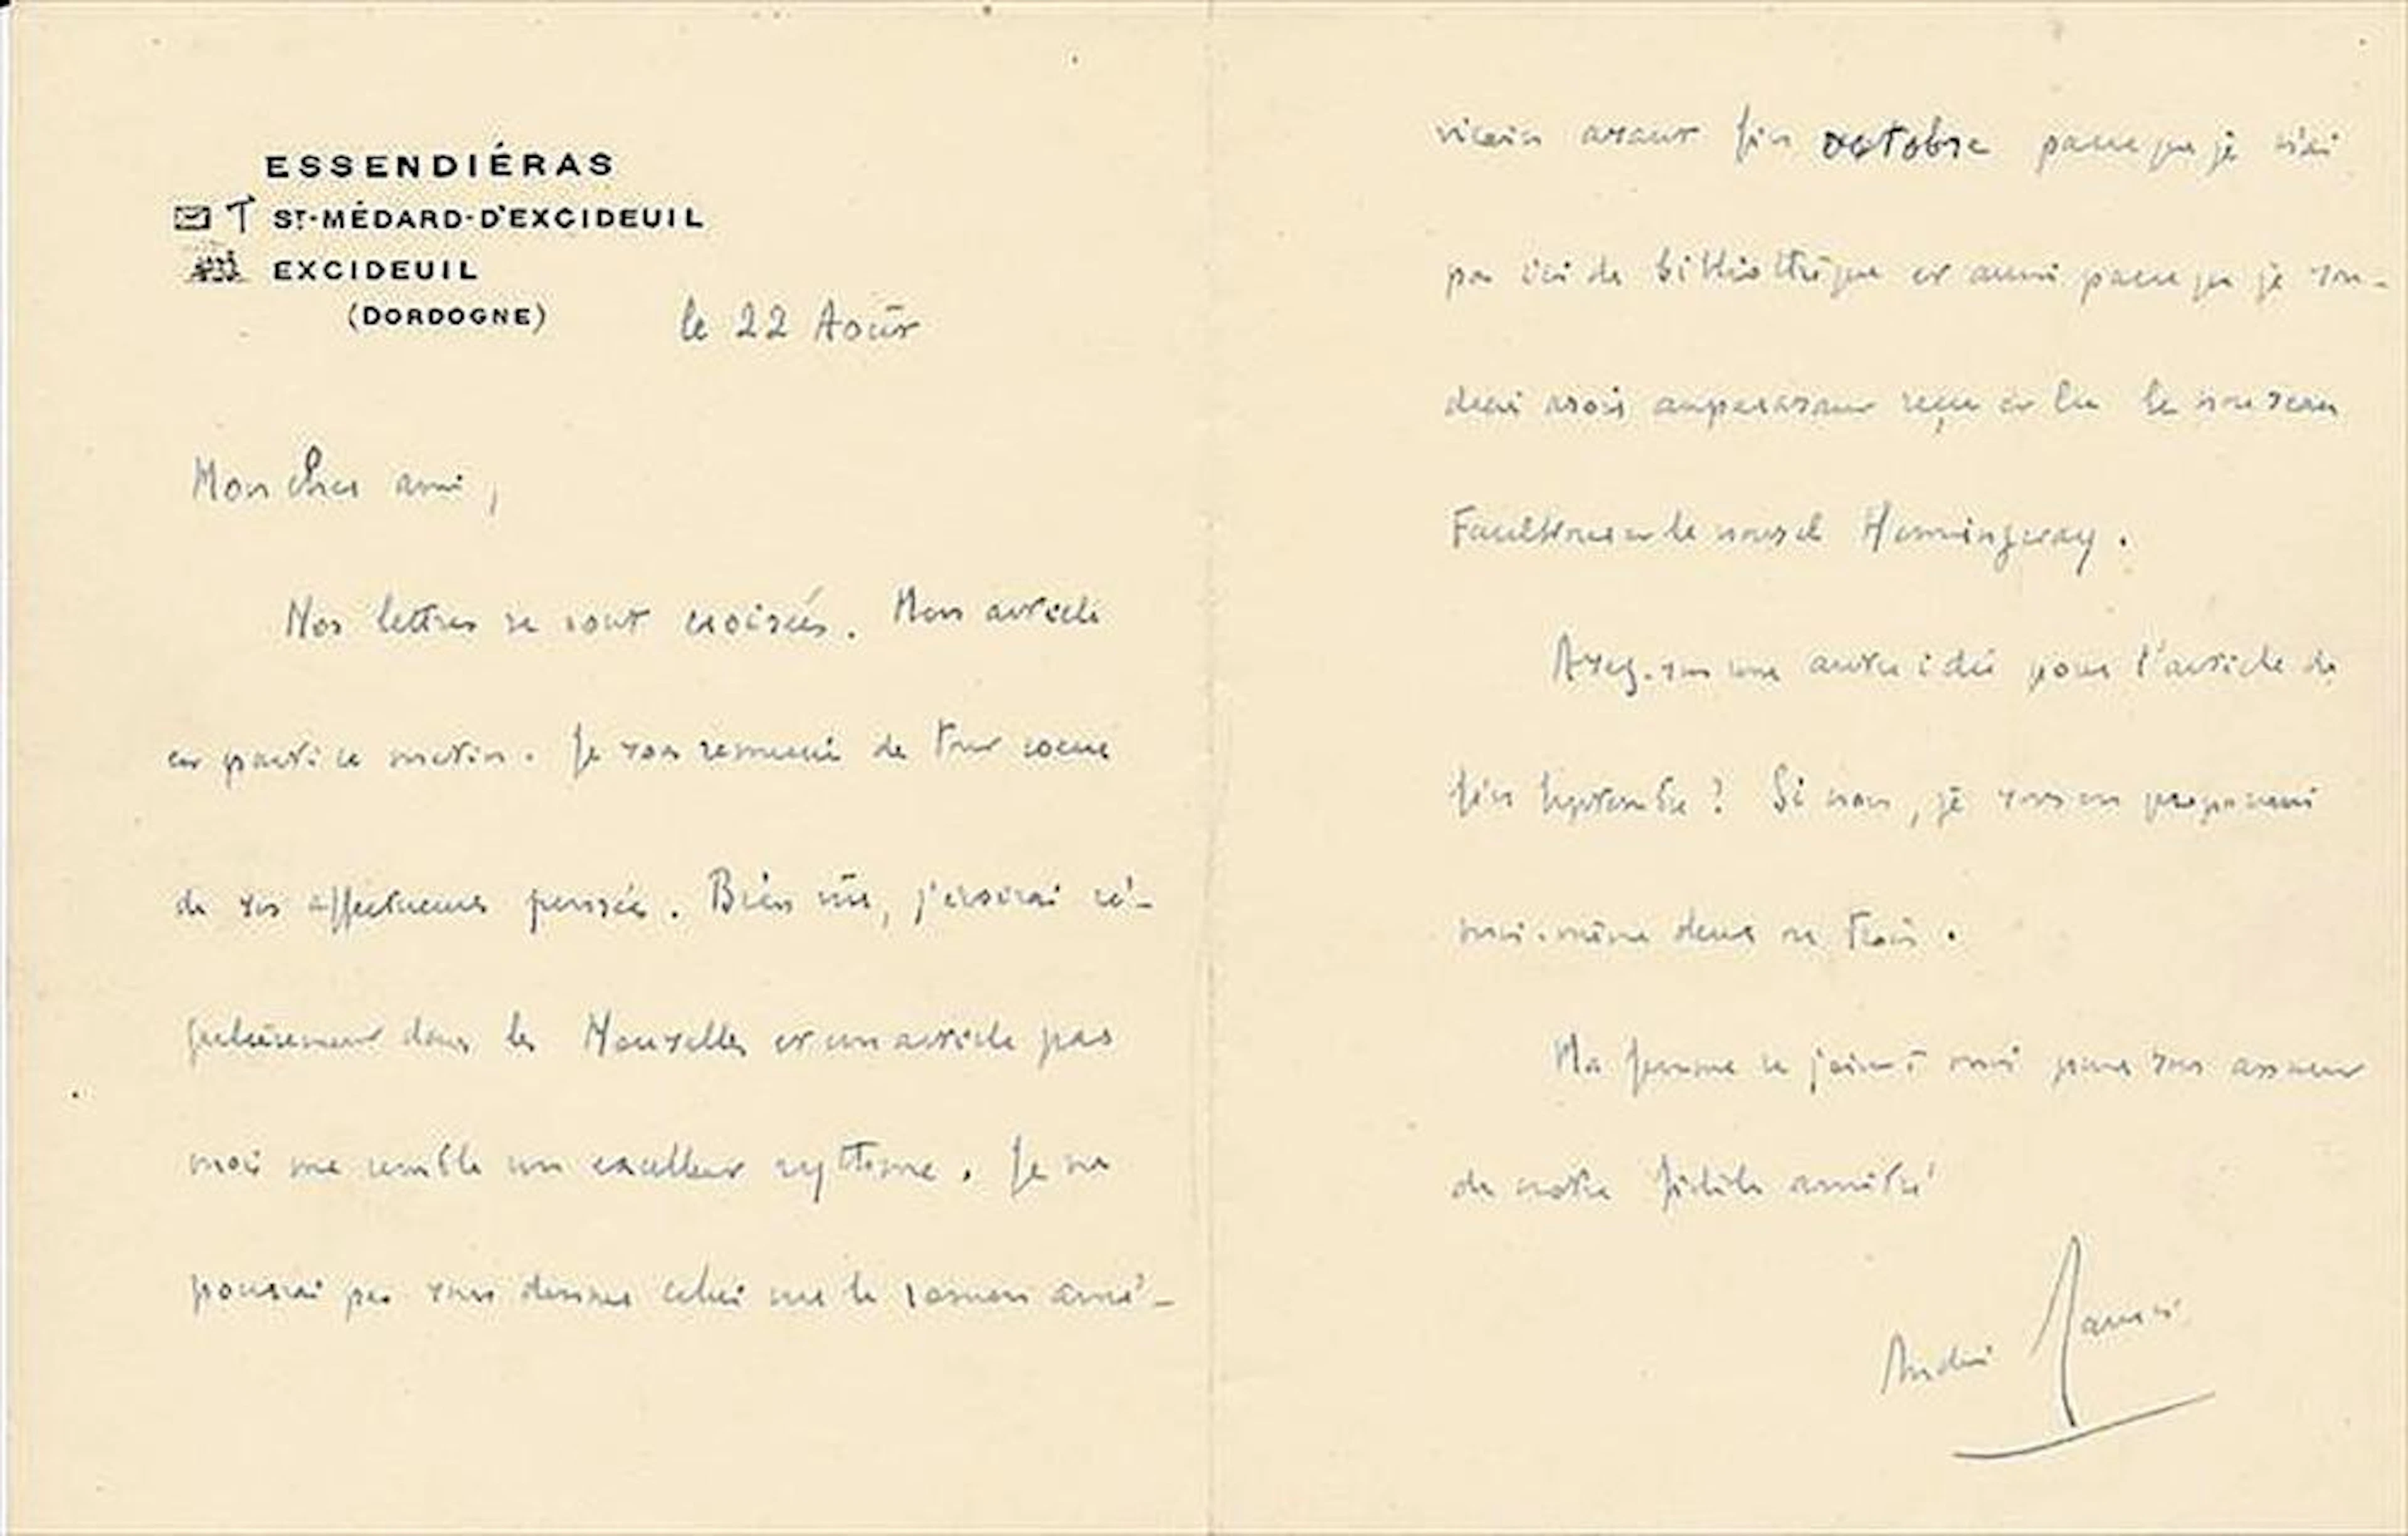 ESSENDIÉRAS
ST-MÉDARD-D'EXCIDEUIL
EXCIDEUIL
(DORDOGNE)
le 22 Août
Mon cher ami,
Nos lettres se sont croisées. Mon article
est parti ce matin. Je vous remercie de tout coeur
de vos affectueuses pensées. Bien sûr, j'écrirai ré-
gulièrement dans les Nouvelles et un article par
mois me semble un excellent rythme. Je ne
pourrai pas vous donner celui sur le roman amé-
ricain avant fin octobre parce que je n'ai
pas ici de bibliothèque et aussi parce que je vou-
drais avoir auparavant reçu et lu le nouveau
Faulkner et le nouvel Hemingway.
Avez-vous une autre idée pour l'article de
fin Septembre? Si non, je vous en proposerai
moi-même deux ou trois.
Ma femme se joint à moi pour vous assurer
de notre fidèle amitié
André Maurois